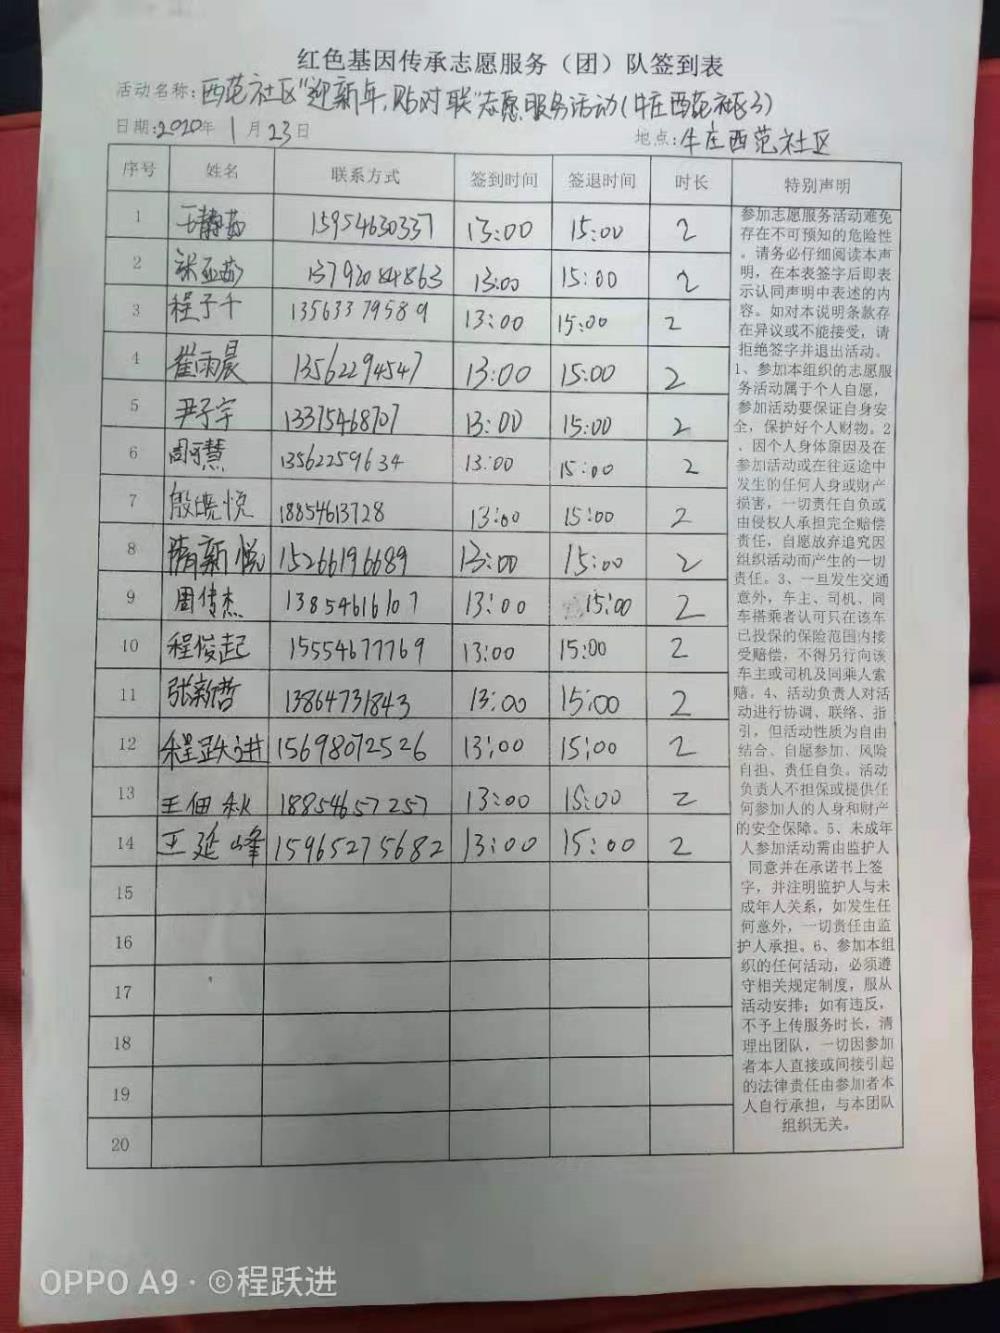 红色基因传承志愿服务（团）队签到表
活动名称:西范社区"迎新年,贴对联"志愿服务活动(牛庄西范社区3)
日期:2020年 1月23日 地点:牛庄西范社区
序号 姓名 联系方式 签到时间 签退时间 时长 特别声明
1 王静茹 15954630337 13:00 15:00 2
2 13792084863 13:00 15:00 2
3 程子千 13563379589 13:00 15:00 2
4 崔雨晨 13562294547 13:00 15:00 2
5 尹子宇 13375468707 13:00 15:00 2
6 周可慧 13562259634 13:00 15:00 2
7 殷晓悦 18854613728 13:00 15:00 2
8 隋新悦 15266196689 13:00 15:00 2
9 周传杰 13854616107 13:00 15:00 2
10 程俊起 15554677769 13:00 15:00 2
11 张新哲 13864731843 13:00 15:00 2
12 程跃进 15698072526 13:00 15:00 2
13 王佃秋 18854657257 13:00 15:00 2
14 王延峰 15965275682 13:00 15:00 2
15
16
17
18
19
20
参加志愿服务活动难免
存在不可预知的危险性
。请务必仔细阅读本声
明，在本表签字后即表
示认同声明中表述的内
容。如对本说明条款存
在异议或不能接受，请
拒绝签字并退出活动。
1、参加本组织的志愿服
务活动属于个人自愿，
参加活动要保证自身安
全，保护好个人财物。2
、因个人身体原因及在
参加活动或在往返途中
发生的任何人身或财产
损害，一切责任自负或
由侵权人承担完全赔偿
责任，自愿放弃追究因
组织活动而产生的一切
责任。3、一旦发生交通
意外，车主、司机、同
车搭乘者认可只在该车
已投保的保险范围内接
受赔偿，不得另行向该
车主或司机及同乘人索
赔。4、活动负责人对活
动进行协调、联络、指
引，但活动性质为自由
结合、自愿参加、风险
自担、责任自负。活动
负责人不担保或提供任
何参加人的人身和财产
的安全保障。5、未成年
人参加活动需由监护人
同意并在承诺书上签
字，并注明监护人与未
成年人关系，如发生任
何意外，一切责任由监
护人承担。6、参加本组
织的任何活动，必须遵
守相关规定制度，服从
活动安排；如有违反，
不予上传服务时长，清
理出团队，一切因参加
者本人直接或间接引起
的法律责任由参加者本
人自行承担，与本团队
组织无关。
OPPO A9 · ©程跃进